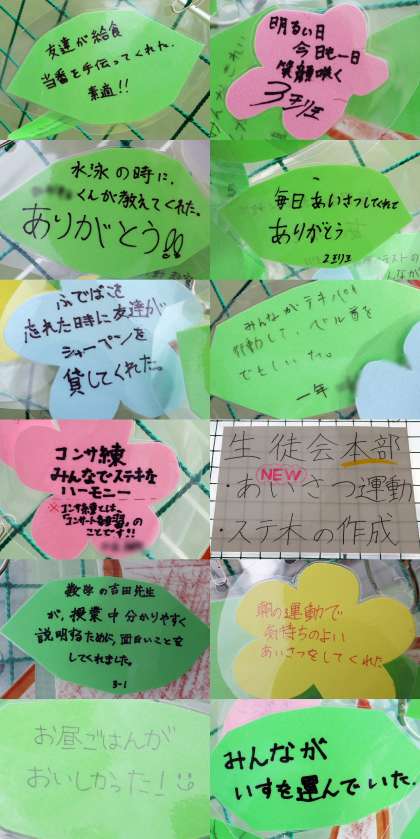 友達が給食
当番を手伝ってくれた。
素適!!
明るい日
今日も一日
笑顔咲く
水泳の時に、
くんが教えてくれた。
ありがとう!!
毎日あいさつしてくれて
ありがとう
ふでばこを
忘れた時に友達が
シャーペンを
貸してくれた。
みんながテキパキ
行動して、ベル着を
でき
一年
コンサ練
みんなでステキな
ハーモニー
※コンサ練とは、
「コンサート練習」の
ことです!!
生徒会本部
NEW
・あいさつ運動
・ステ木の作成
数学の吉田先生
が、授業中分かりやすく
説明するために、面白いことを
してくれました。
3-1
朝の運動で
気持ちのよい
あいさつをしてくれた
お昼ごはんが
おいしかった!
みんなが
いすを運んでいた。